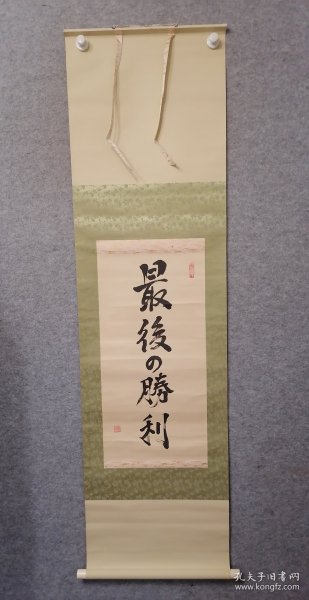 最後の勝利
孔夫子旧书网
www.kongfz.com